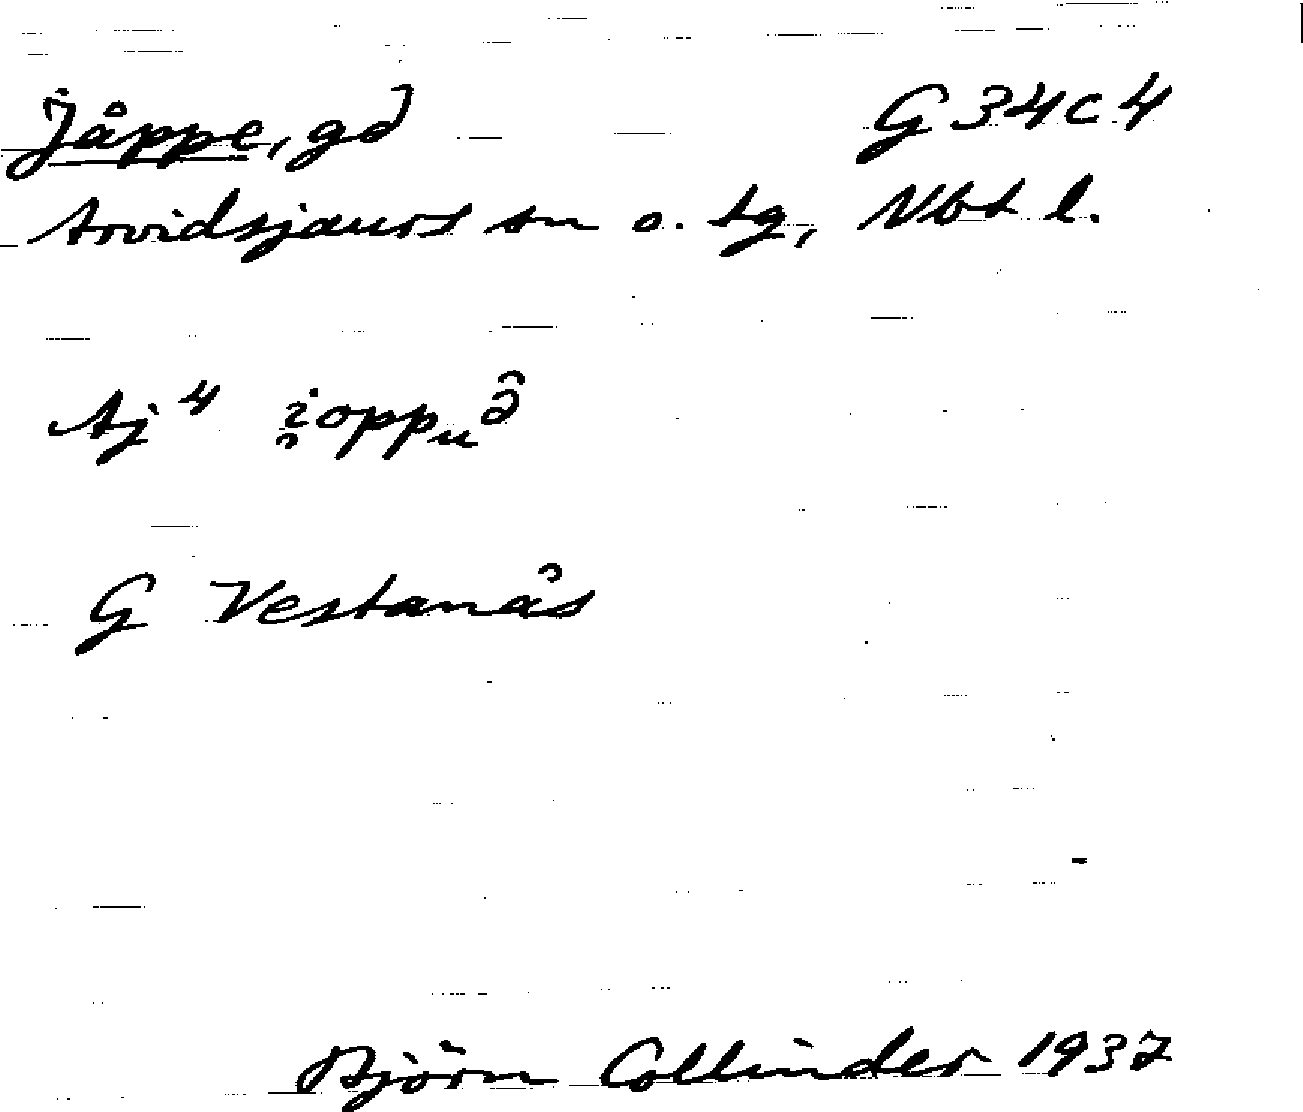 Jåppe, gd G34c4
Arvidsjaurs sn o. tg, Vbt l.
Aj⁴ i̯oppₙə̂
G Vestanås
Björn Collinder 1937